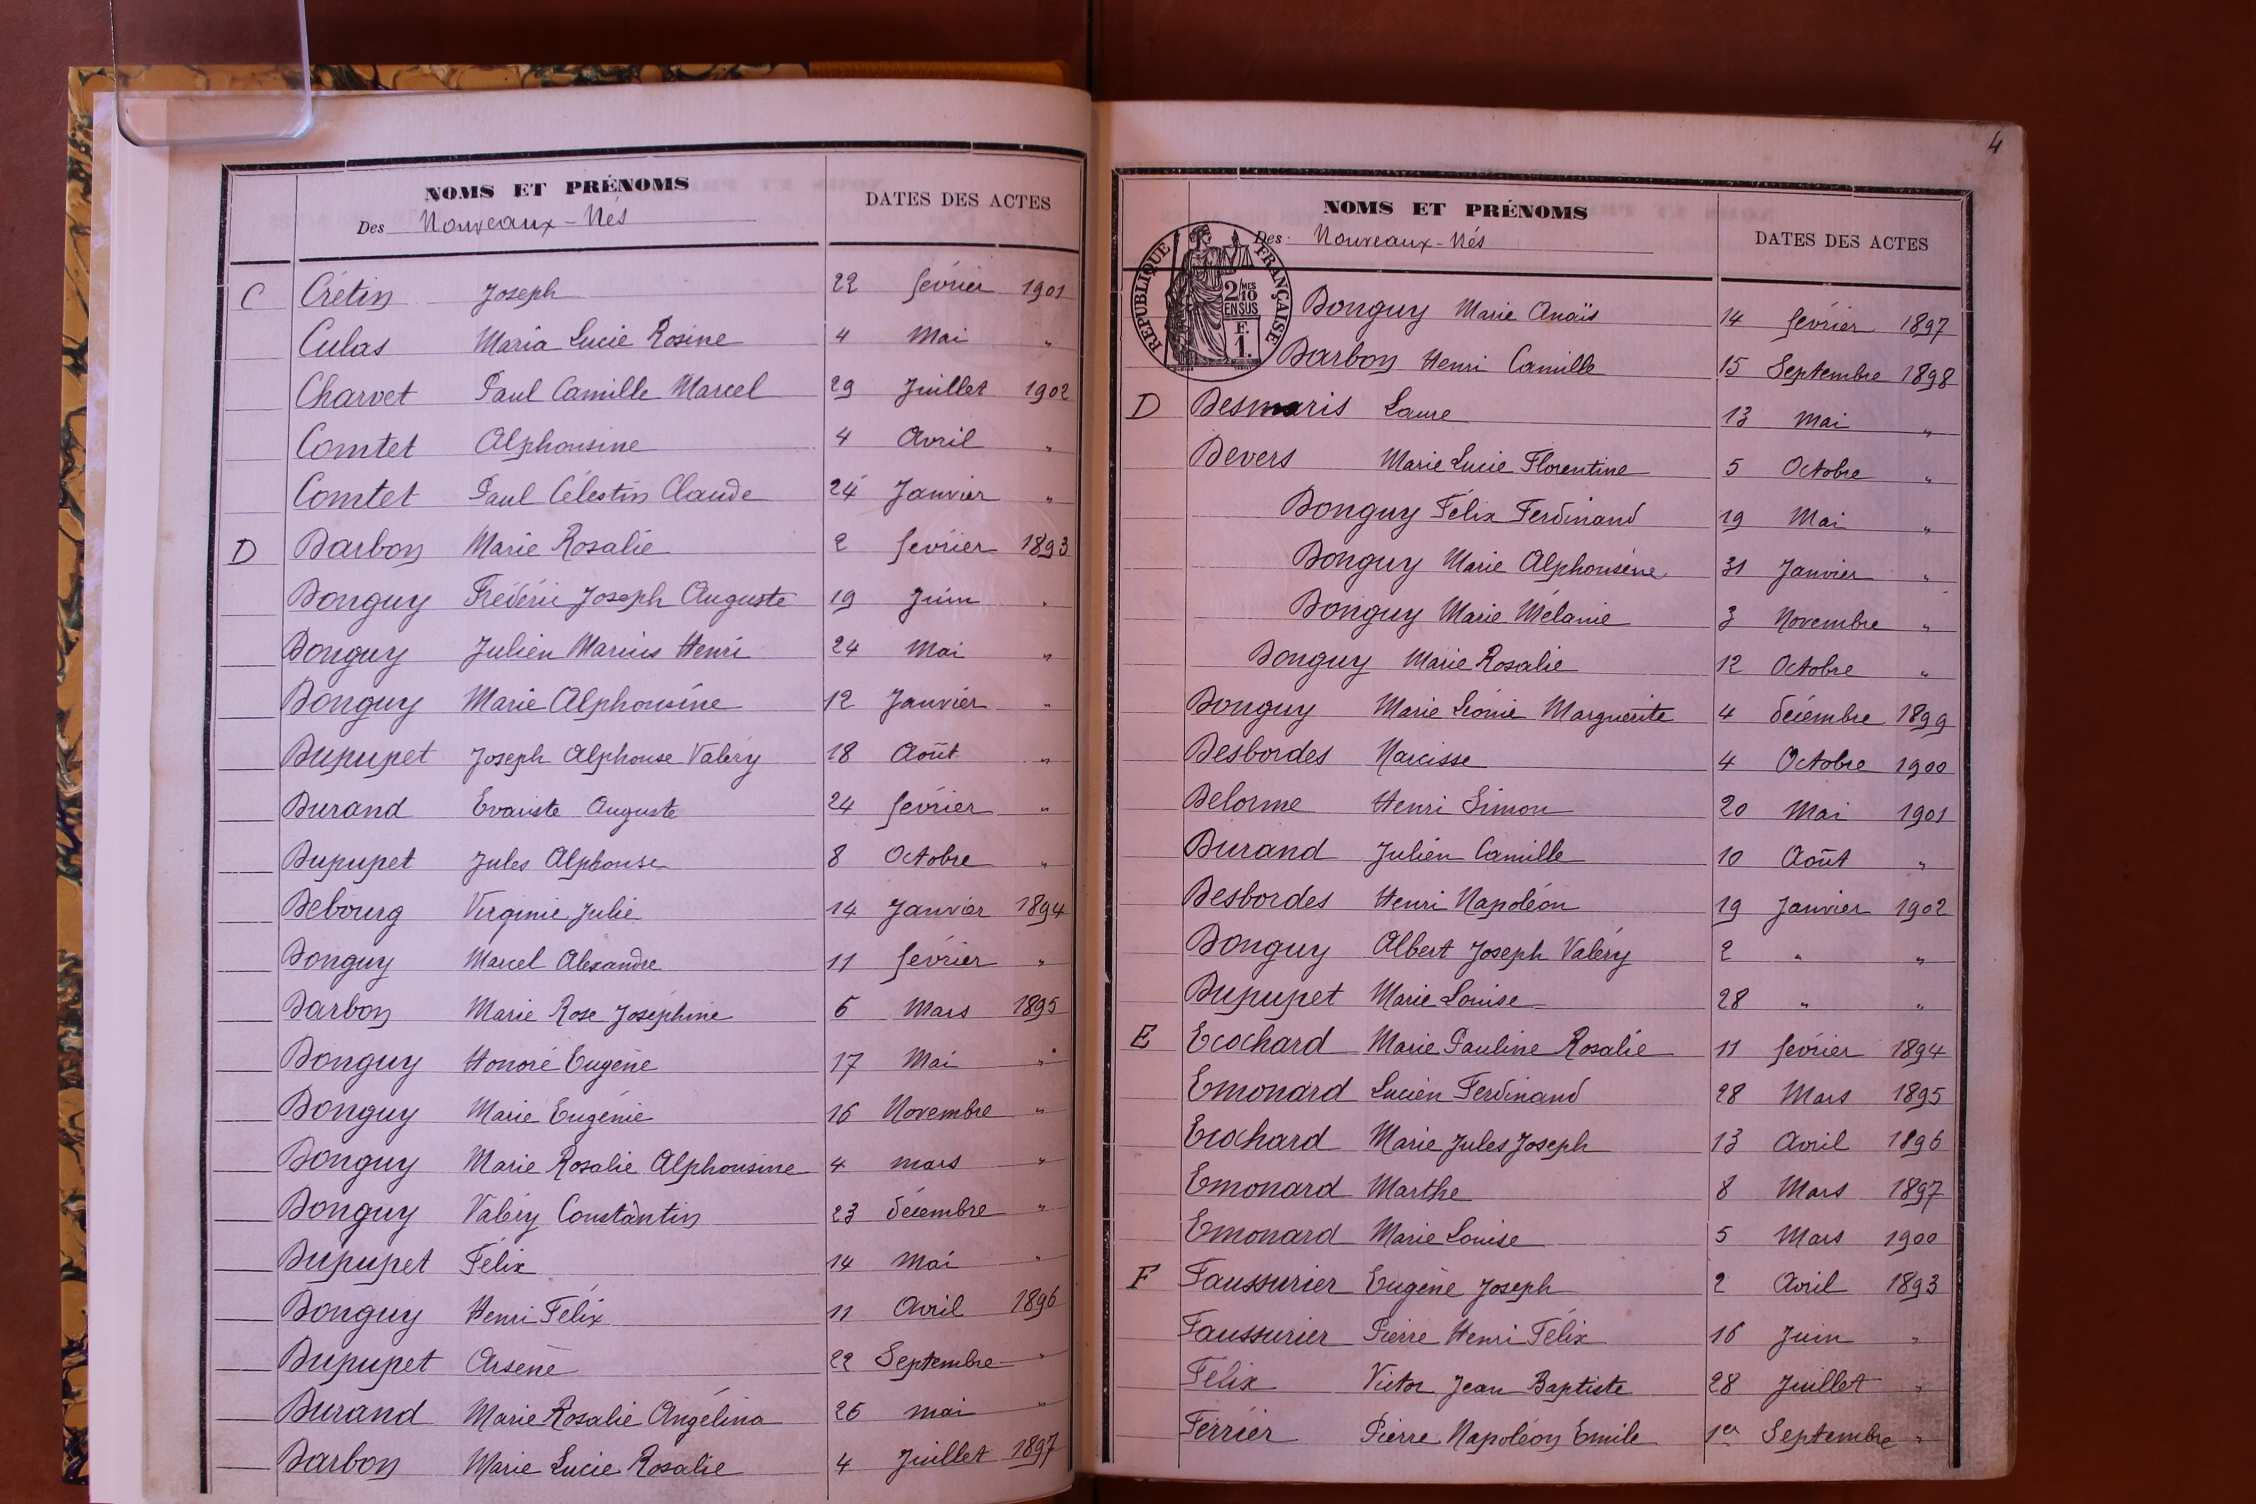 NOMS ET PRÉNOMS
Des Nouveaux-Nés
DATES DES ACTES
C Crétin Joseph 22 février 1901
Culas Maria Lucie Rosine 4 Mai "
Charvet Paul Camille Marcel 29 Juillet 1902
Comtet Alphonsine 4 Avril "
Comtet Paul Célestin Claude 24 Janvier "
D Darbon Marie Rosalie 2 février 1893
Donguy Frédéric Joseph Auguste 19 Juin "
Donguy Julien Marius Henri 24 Mai "
Donguy Marie Alphonsine 12 Janvier "
Dupupet Joseph Alphonse Valéry 18 Août "
Durand Evariste Auguste 24 février "
Dupupet Jules Alphonse 8 Octobre "
Debourg Virginie Julie 14 Janvier 1894
Donguy Marcel Alexandre 11 février "
Darbon Marie Rose Joséphine 6 Mars 1895
Donguy Honoré Eugène 17 Mai "
Donguy Marie Eugénie 16 Novembre "
Donguy Marie Rosalie Alphonsine 4 mars "
Donguy Valéry Constantin 23 décembre "
Dupupet Félix 14 Mai "
Donguy Henri Félix 11 Avril 1896
Dupupet Arsène 22 Septembre "
Durand Marie Rosalie Angélina 26 mai "
Darbon Marie Lucie Rosalie 4 Juillet 1897
4
NOMS ET PRÉNOMS
Des Nouveaux-Nés
DATES DES ACTES
RÉPUBLIQUE FRANÇAISE
2/10 MES
EN SUS
F.
1.
Donguy Marie Anaïs 14 février 1897
Darbon Henri Camille 15 Septembre 1898
D Desmaris Laure 13 Mai "
Devers Marie Lucie Florentine 5 Octobre "
Donguy Félix Ferdinand 19 Mai "
Donguy Marie Alphonsine 31 Janvier "
Donguy Marie Mélanie 3 Novembre "
Donguy Marie Rosalie 12 Octobre "
Donguy Marie Léonie Marguerite 4 décembre 1899
Desbordes Narcisse 4 Octobre 1900
Delorme Henri Simon 20 Mai 1901
Durand Julien Camille 10 Août "
Desbordes Henri Napoléon 19 Janvier 1902
Donguy Albert Joseph Valéry 2 " "
Dupupet Marie Louise 28 " "
E Ecochard Marie Pauline Rosalie 11 février 1894
Emonard Lucien Ferdinand 28 Mars 1895
Ecochard Marie Jules Joseph 13 Avril 1896
Emonard Marthe 8 Mars 1897
Emonard Marie Louise 5 Mars 1900
F Faussurier Eugène Joseph 2 Avril 1893
Faussurier Pierre Henri Félix 16 Juin "
Félix Victor Jean Baptiste 28 Juillet "
Ferrier Pierre Napoléon Emile 1er Septembre "